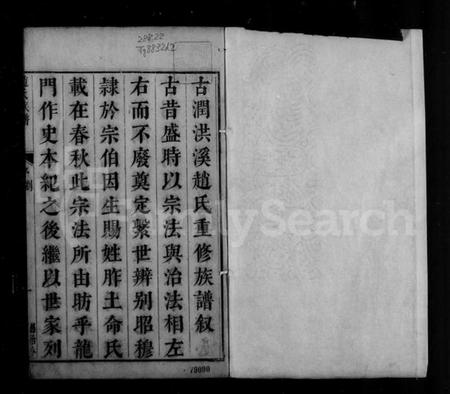 古潤洪溪趙氏重修族譜叙
古昔盛時以宗法與治法相左
右而不廢奠定繫世辨别昭穆
隸於宗伯因生賜姓胙土命氏
載在春秋此宗法所由昉乎龍
門作史本紀之後繼以世家列
79090
FamilySearch